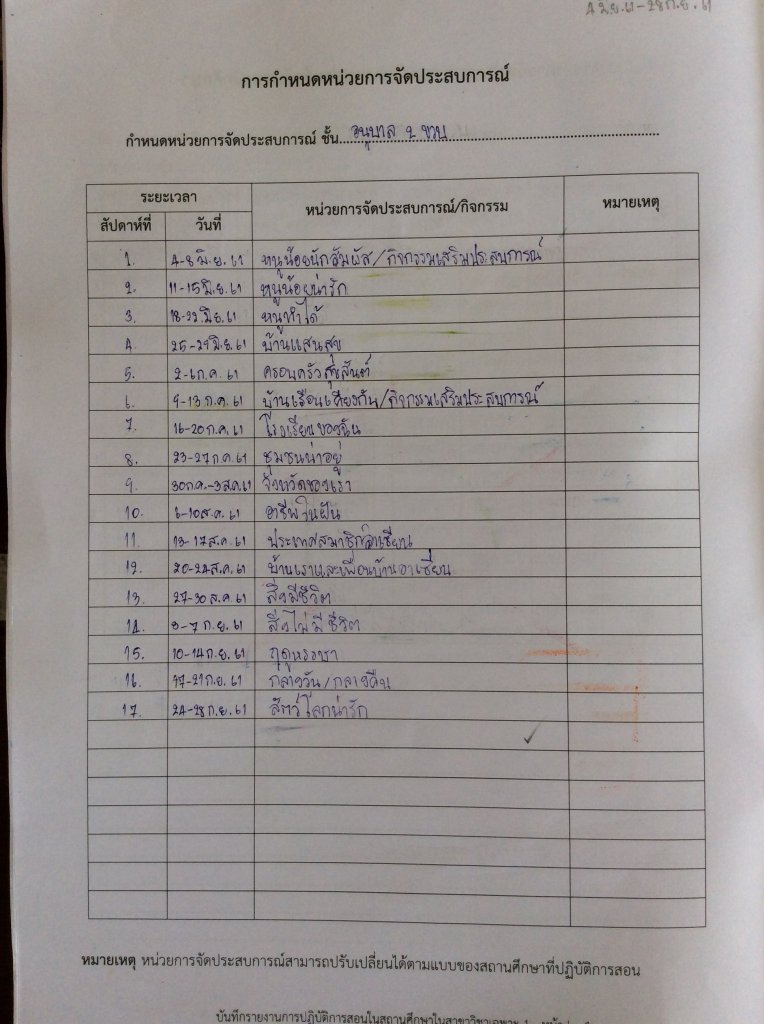 4 มิ.ย. 61 - 28 ก.ย. 61
การกำหนดหน่วยการจัดประสบการณ์
กำหนดหน่วยการจัดประสบการณ์ ชั้น อนุบาล 2 ขวบ
ระยะเวลา หน่วยการจัดประสบการณ์/กิจกรรม หมายเหตุ
สัปดาห์ที่ วันที่
1. 4-8 มิ.ย. 61 หนูน้อยนักสัมผัส/กิจกรรมเสริมประสบการณ์
2. 11-15 มิ.ย. 61 หนูน้อยน่ารัก
3. 18-22 มิ.ย. 61 หนูทำได้
4. 25-29 มิ.ย. 61 บ้านแสนสุข
5. 2-6 ก.ค. 61 ครอบครัวสุขสันต์
6. 9-13 ก.ค. 61 บ้านเรือนเคียงกัน/กิจกรรมเสริมประสบการณ์
7. 16-20 ก.ค. 61 โรงเรียนของฉัน
8. 23-27 ก.ค. 61 ชุมชนน่าอยู่
9. 30 ก.ค.-3 ส.ค. 61 จังหวัดของเรา
10. 6-10 ส.ค. 61 อาชีพในฝัน
11. 13-17 ส.ค. 61 ประเทศสมาชิกอาเซียน
12. 20-24 ส.ค. 61 บ้านเราและเพื่อนบ้านอาเซียน
13. 27-30 ส.ค. 61 สิ่งมีชีวิต
14. 3-7 ก.ย. 61 สิ่งไม่มีชีวิต
15. 10-14 ก.ย. 61 ฤดูหรรษา
16. 17-21 ก.ย. 61 กลางวัน/กลางคืน
17. 24-28 ก.ย. 61 สัตว์โลกน่ารัก
หมายเหตุ หน่วยการจัดประสบการณ์สามารถปรับเปลี่ยนได้ตามแบบของสถานศึกษาที่ปฏิบัติการสอน
บันทึกรายงานการปฏิบัติการสอนในสถานศึกษาในสาขาวิชาเฉพาะ 1